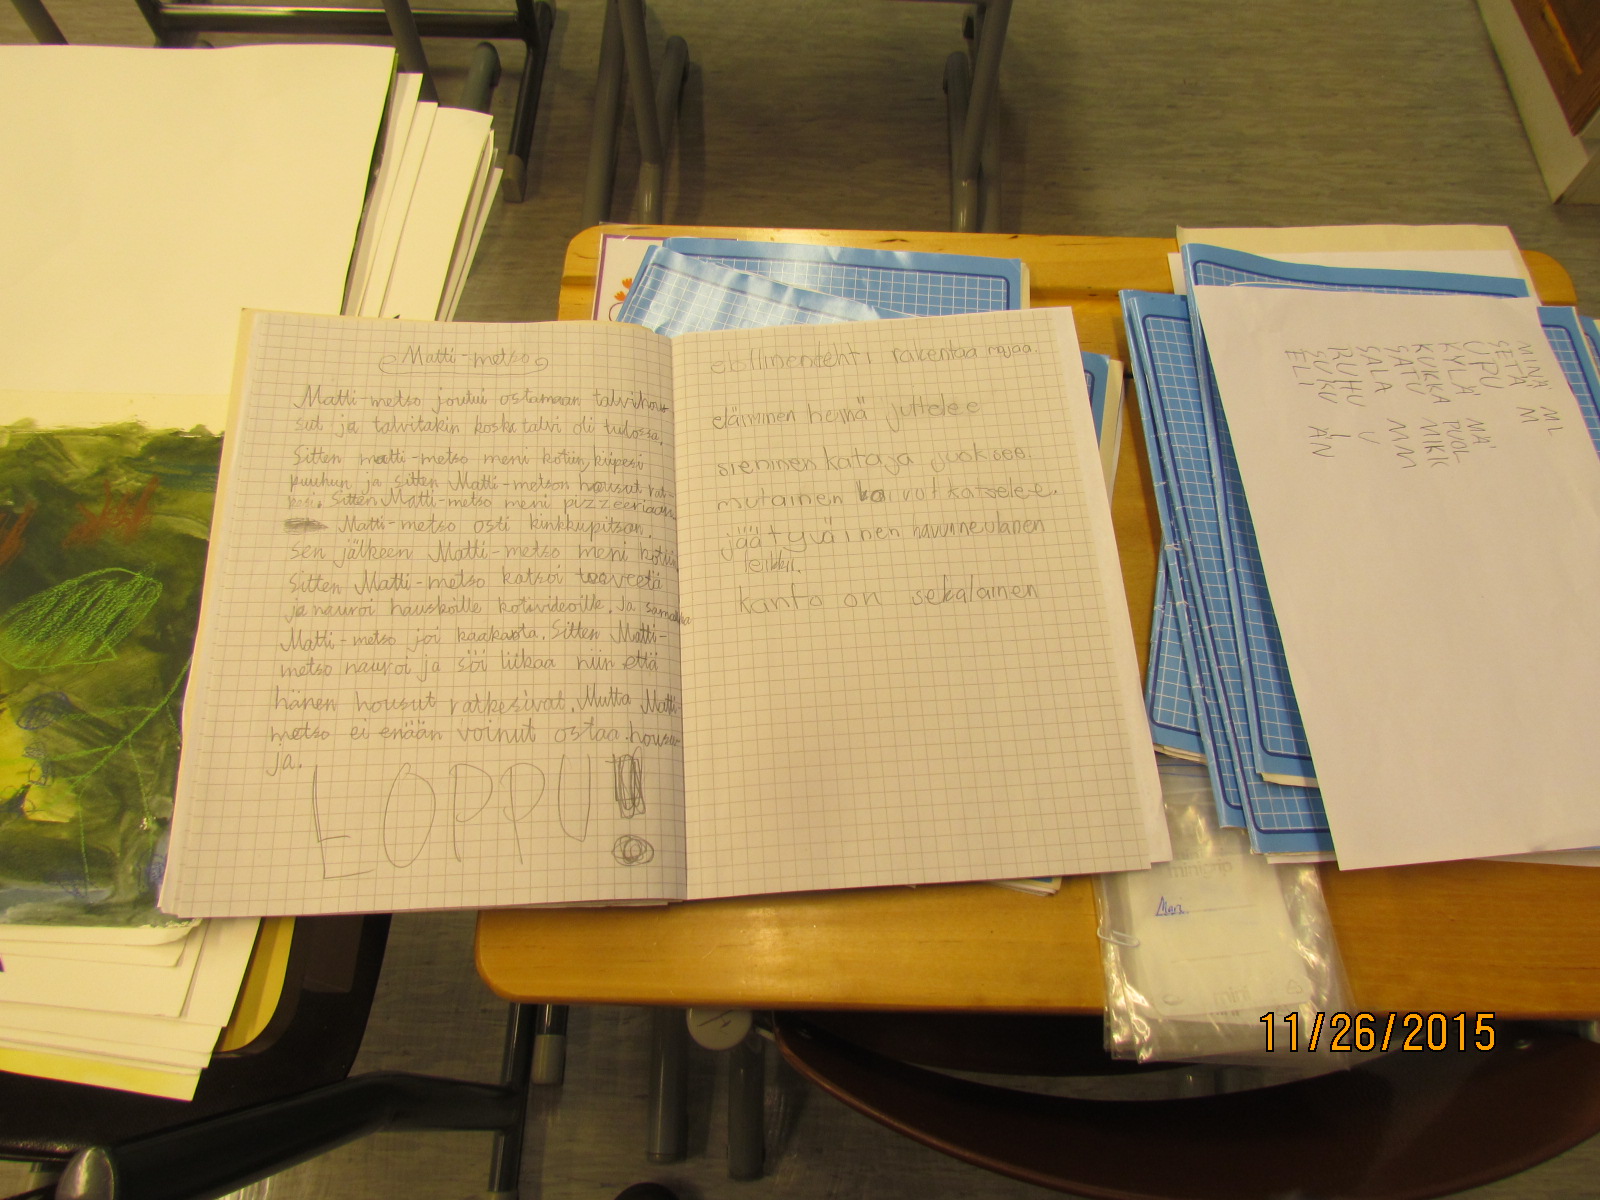 Matti-metso
Matti-metso joutui ostamaan talvihou-
sut ja talvitakin koska talvi oli tulossa.
Sitten matti-metso meni kotiin, kiipesi
puuhun ja sitten Matti-metson housut rat-
kesi. Sitten Matti-metso meni pizzeeriaan
Matti-metso osti kinkkupitsan.
sen jälkeen Matti-metso meni kotiin
Sitten Matti-metso katsoi teeveetä
ja nauroi hauskoille kotivideoille. Ja samalla
Matti-metso joi kaakaota. Sitten Matti-
metso nauroi ja söi liikaa niin että
hänen housut ratkesivat. Mutta Matti-
metso ei enään voinut ostaa housu-
ja.
LOPPU!
rakentaa majaa.
eläiminen heinä juttelee
sieninen kataja juoksee.
mutainen kaivot katselee.
jäätyväinen havunneulanen
leikkii.
kanto on sekalainen
MINÄ ML
SETÄ M
UPU
KYLÄ MÄ
KUKKA PUOL
SATU NIKK
SALA MM
RUHU U
SUKU
ELI ÄN
minigrip
mini
11/26/2015